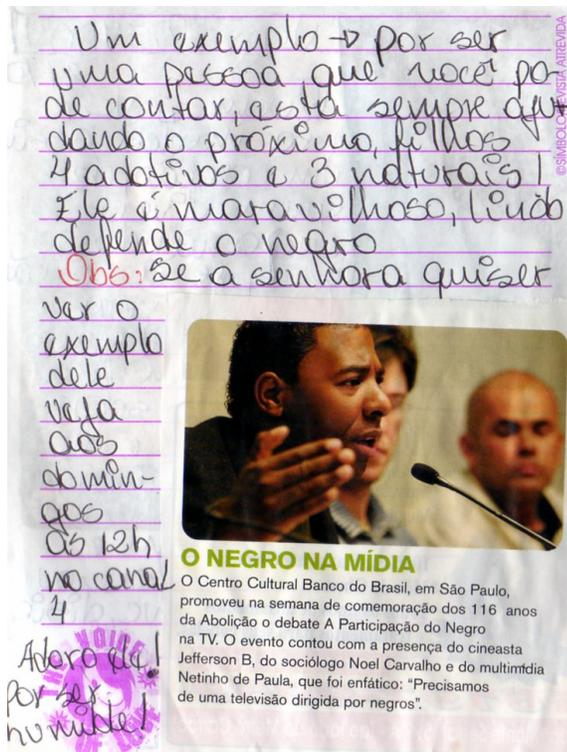 Um exemplo → por ser
uma pessoa que você po-
de contar, está sempre aju-
dando o próximo, filhos
4 adotivos e 3 naturais!
Ele é maravilhoso, lindo
defende o negro
Obs: Se a senhora quiser
ver o
exemplo
dele
veja
aos
domin-
gos
às 12h
no canal
4
Adoro ele!
Por ser
humilde!
THE VOICE
OF LOVE
©SÍMBOLO/REVISTA ATREVIDA
O NEGRO NA MÍDIA
O Centro Cultural Banco do Brasil, em São Paulo,
promoveu na semana de comemoração dos 116 anos
da Abolição o debate A Participação do Negro
na TV. O evento contou com a presença do cineasta
Jefferson B, do sociólogo Noel Carvalho e do multimídia
Netinho de Paula, que foi enfático: “Precisamos
de uma televisão dirigida por negros”.